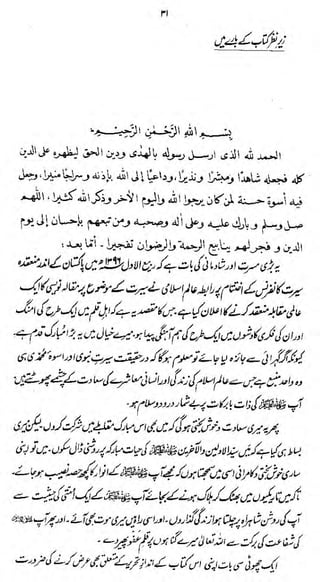 ۳۱
زیرِ نظر کتاب کے بارے میں
بِسْمِ اللهِ الرَّحْمٰنِ الرَّحِيْمِ
الحمد لله الذي ارسل رسوله بالهدٰى ودين الحق ليظهره على الدين
كله فجعله شاهدًا ومبشرًا ونذيرًا، وداعيًا إلى الله بإذنه وسراجًا منيرًا، وجعل
فيه أسوة حسنة لمن كان يرجوا الله واليوم الآخر وذكر الله كثيرا، اللهم
صل وسلم وبارك عليه وعلى أله وصحبه ومن تبعهم بإحسان إلى يوم
الدين وفجر لهم ينابيع الرحمة والرضوان تفجيرا۔ أما بعد؛
یہ بڑی مسرت اور شادمانی کی بات ہے کہ ربیع الاول ۱۳۹۶ھ میں پاکستان کے اندر منعقدہ
سیرت کانفرنس کے اختتام پر رابطہ عالم اسلامی نے سیرت کے موضوع پر مقالہ نویسی کا ایک
عالمی مقابلہ منعقد کرنے کا اعلان کیا ہے، جس کا مقصد یہ ہے کہ اہل قلم میں ایک طرح کی امنگ
اور ان کی فکری کاوشوں میں ایک طرح کی ہم آہنگی پیدا ہو۔ میرے خیال میں یہ بڑا مبارک قدم ہے،
کیونکہ اگر گہرائی سے جائزہ لیا جائے تو معلوم ہوگا کہ درحقیقت سیرت نبوی اور اسوہ محمدی ہی
وہ واحد منبع ہے جس سے عالم اسلام کی زندگی اور انسانی معاشرے کی سعادت کے چشمے پھوٹتے ہیں
آپ ﷺ کی ذات بابرکات پر بے شمار درود و سلام ہو۔
پھر یہ میری سعادت و خوش بختی ہوگی کہ میں بھی اس مبارک مقابلے میں شرکت کروں۔ لیکن میری
بساط ہی کیا ہے کہ میں سید الاولین والآخرین ﷺ کی حیات مبارکہ پر روشنی ڈال سکوں۔ میں تو اپنی
ساری خوش بختی و کامرانی اسی میں سمجھتا ہوں کہ مجھے آپ ﷺ کے انوار کا کچھ حصہ نصیب ہو جائے۔
تاکہ میں تاریکیوں میں بھٹک کر ہلاک ہونے کے بجائے آپ ﷺ کے ایک امتی کی حیثیت سے
آپ کی روشن شاہراہ پر چلتا ہوا زندگی گذاروں، اور اسی راہ میں میری موت بھی آئے۔ اور پھر آپ ﷺ
کی شفاعت کی برکت سے اللہ تعالیٰ میرے گناہوں پر قلم عفو پھیر دے۔
ایک چھوٹی سی بات اپنی اس کتاب کے انداز تحریر کے متعلق بھی عرض کرنے کی ضرورت